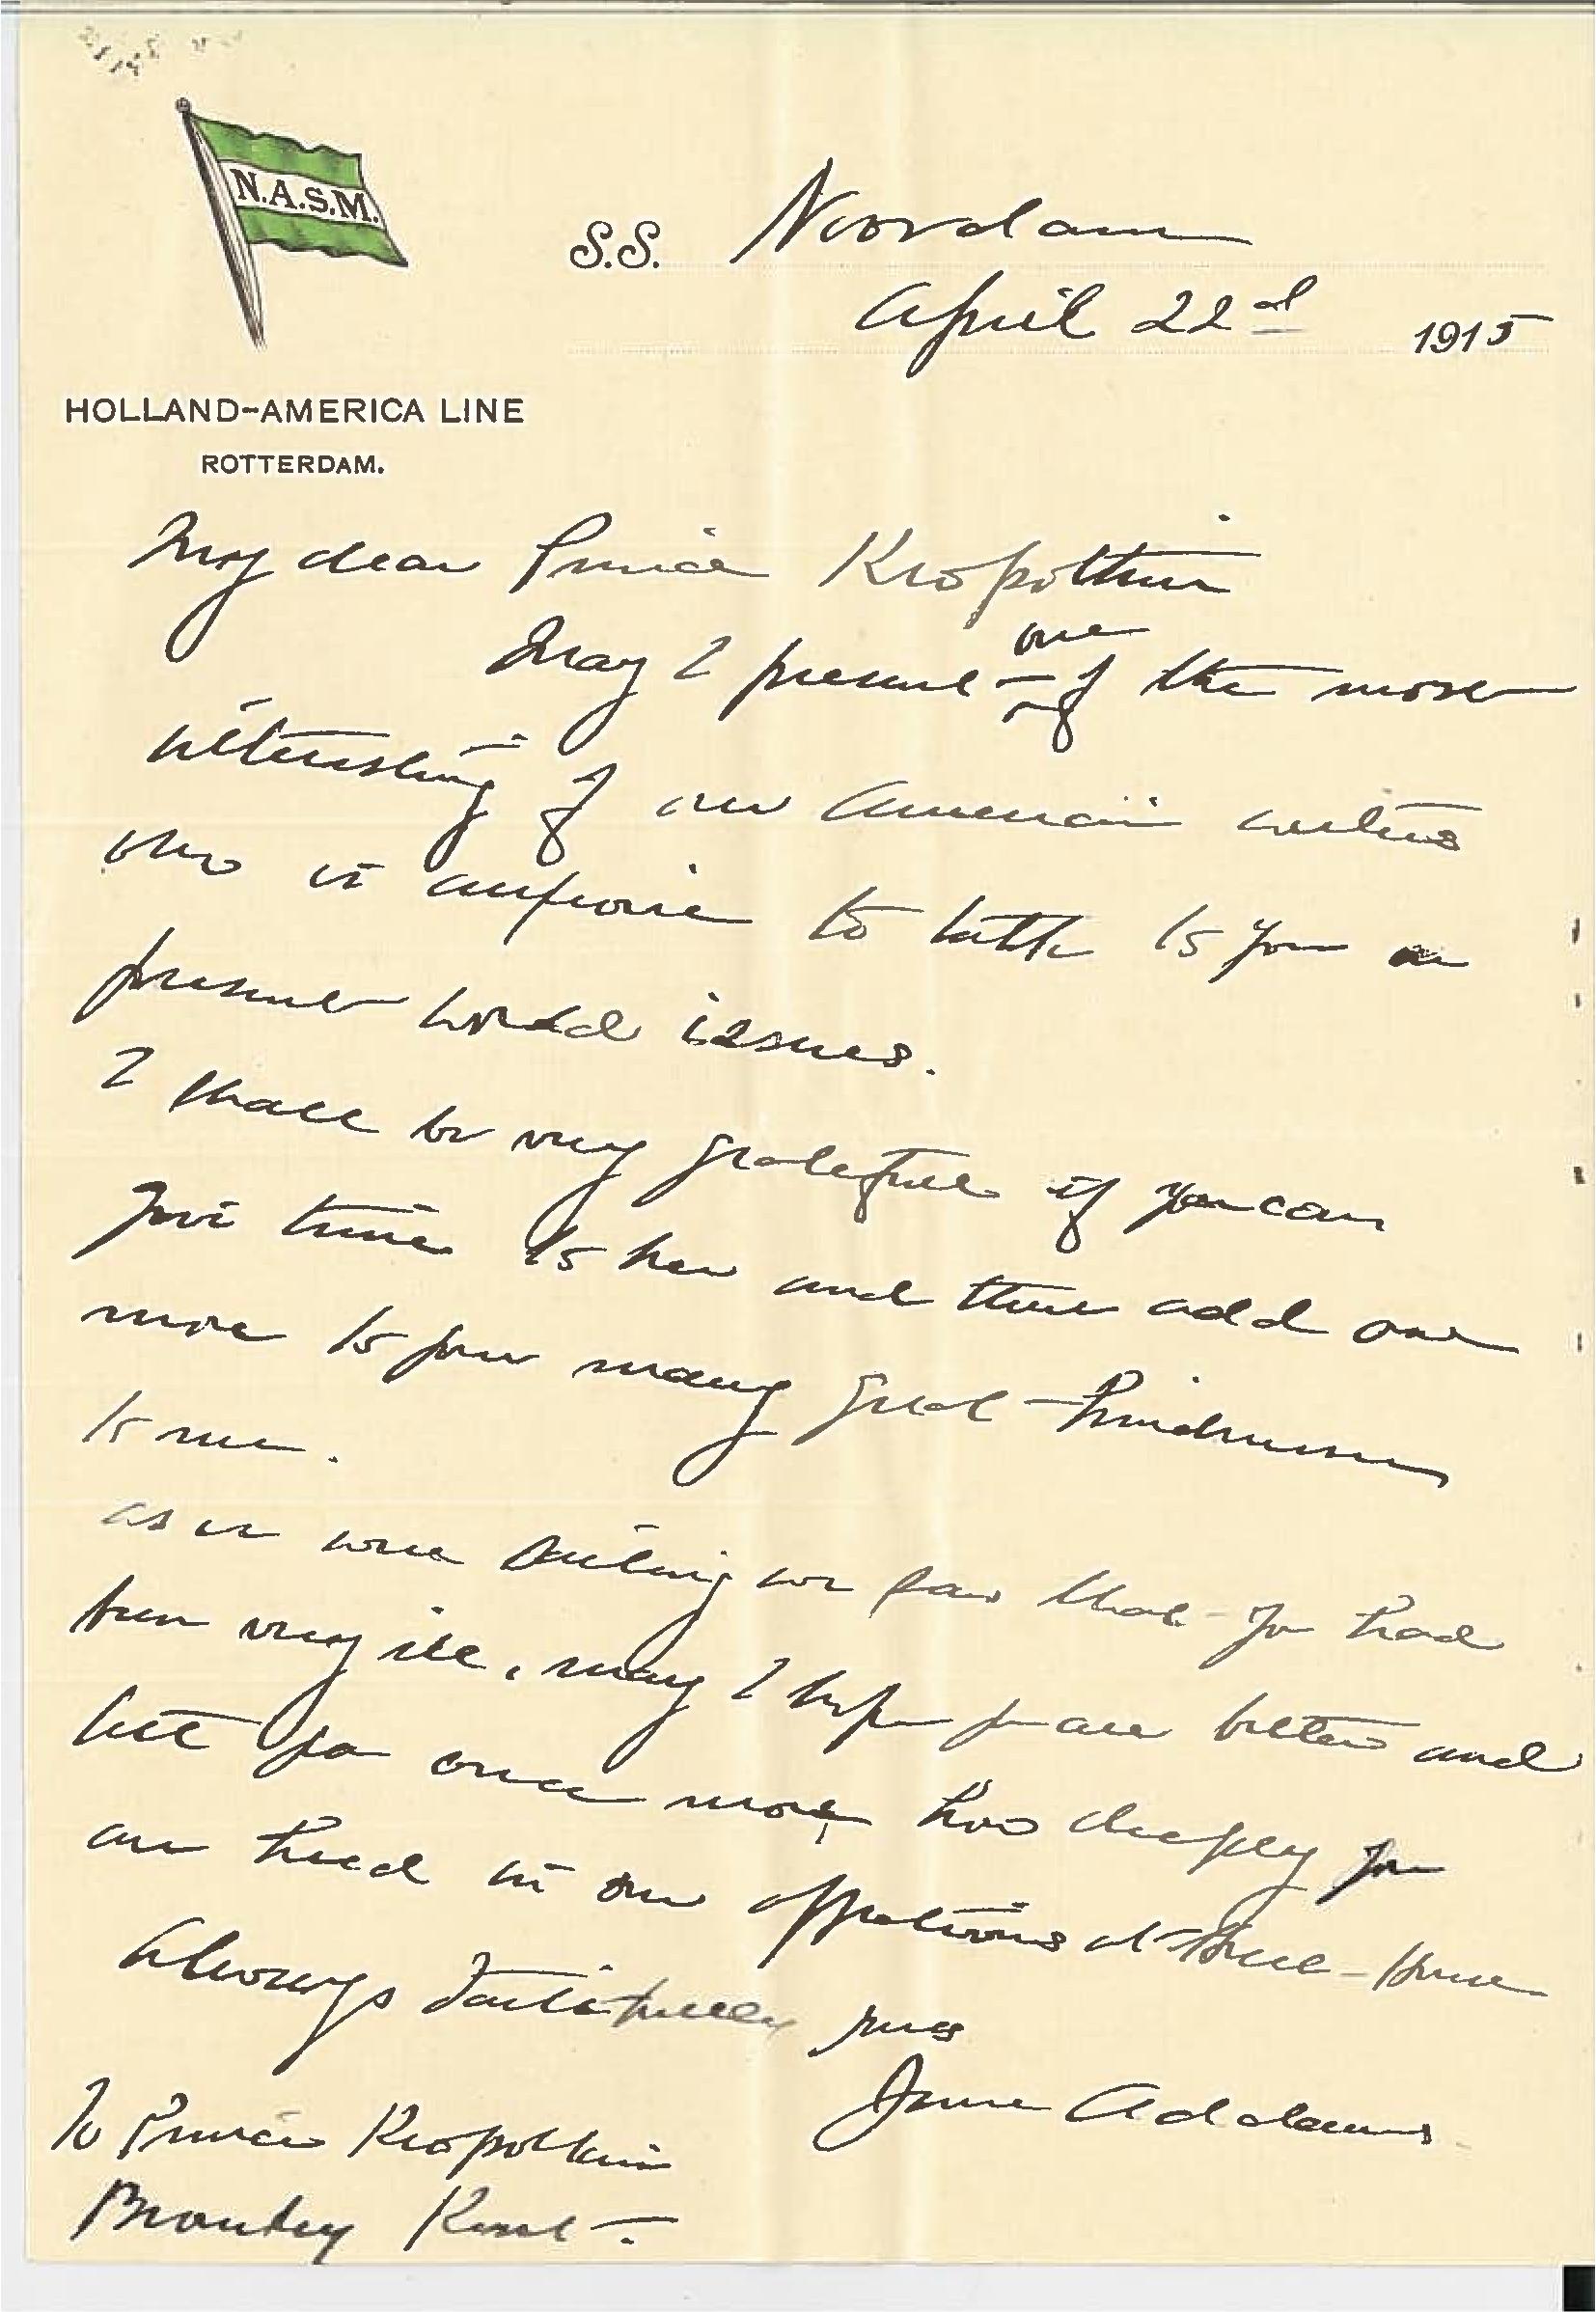 N.A.S.M.
S.S. Noordam
April 22nd 1915
HOLLAND-AMERICA LINE
ROTTERDAM.
My dear Prince Kropotkin
May I present one of the most
interesting of our American writers
who is anxious to talk to you on
present world issues.
I shall be very grateful if you can
give time to her and thus add one
more to your many great kindnesses
to me.
As we were sailing we saw that you had
been very ill, may I hope you are better and
tell you once more how deeply you
are held in our affections at Hull-House
Always faithfully yours
Jane Addams
To Prince Kropotkin
Kent.